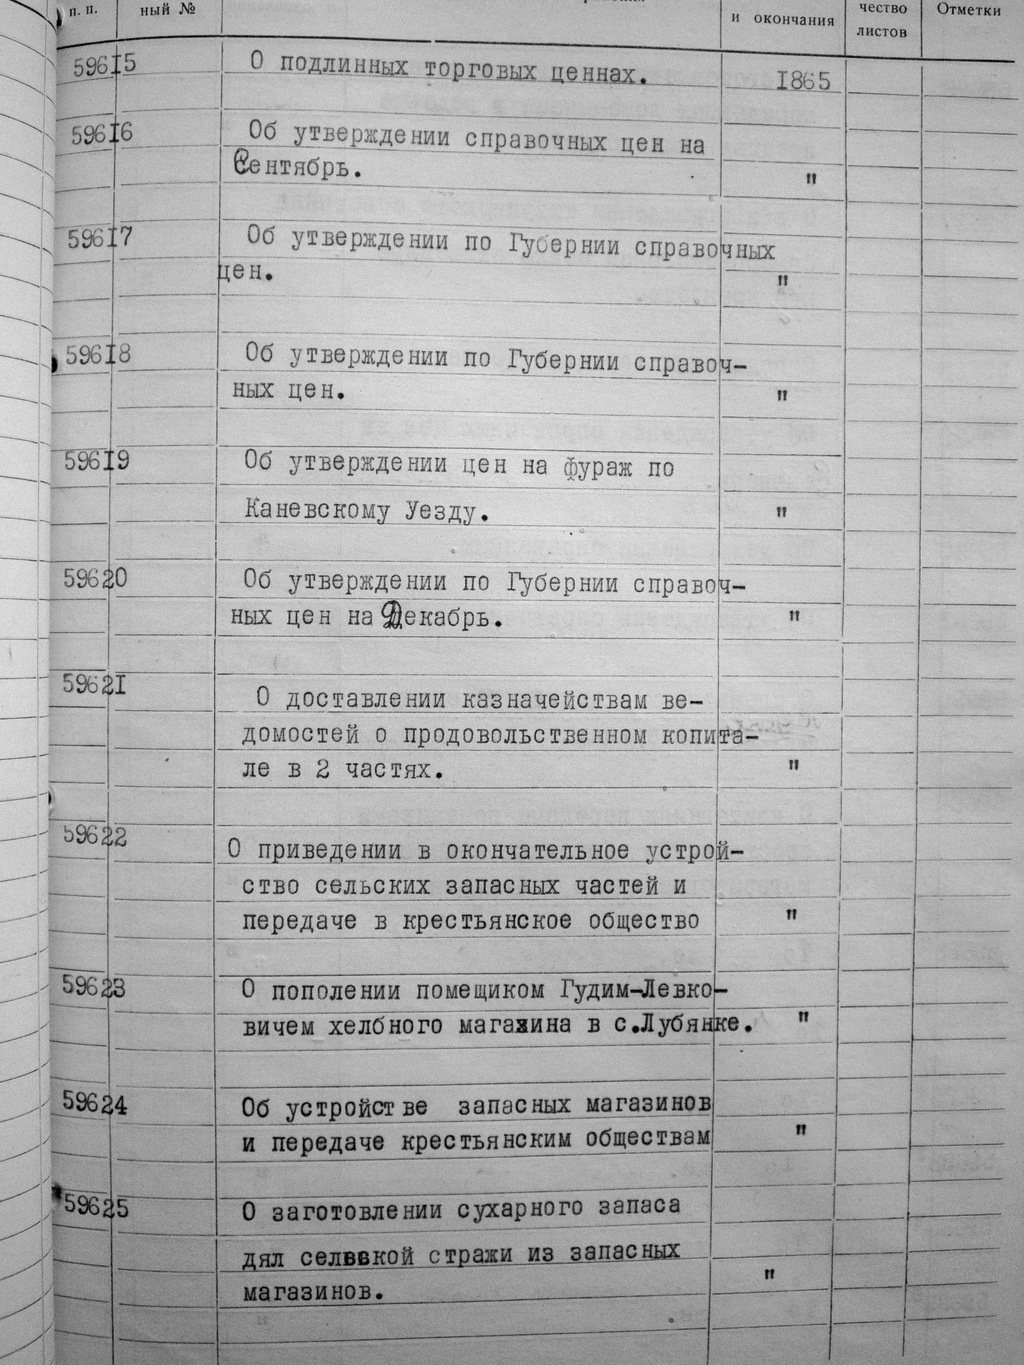 п. п. ный № и окончания чество листов Отметки
59615 О подлинных торговых ценнах. 1865
59616 Об утверждении справочных цен на
Сентябрь. "
59617 Об утверждении по Губернии справочных
цен. "
59618 Об утверждении по Губернии справоч-
ных цен. "
59619 Об утверждении цен на фураж по
Каневскому Уезду. "
59620 Об утверждении по Губернии справоч-
ных цен на Декабрь. "
59621 О доставлении казначействам ве-
домостей о продовольственном копита-
ле в 2 частях. "
59622 О приведении в окончательное устрой-
ство сельских запасных частей и
передаче в крестьянское общество "
59623 О пополении помещиком Гудим-Левко-
вичем хелбного магазина в с.Лубянке. "
59624 Об устройстве запасных магазинов
и передаче крестьянским обществам "
59625 О заготовлении сухарного запаса
дял селвской стражи из запасных
магазинов. "